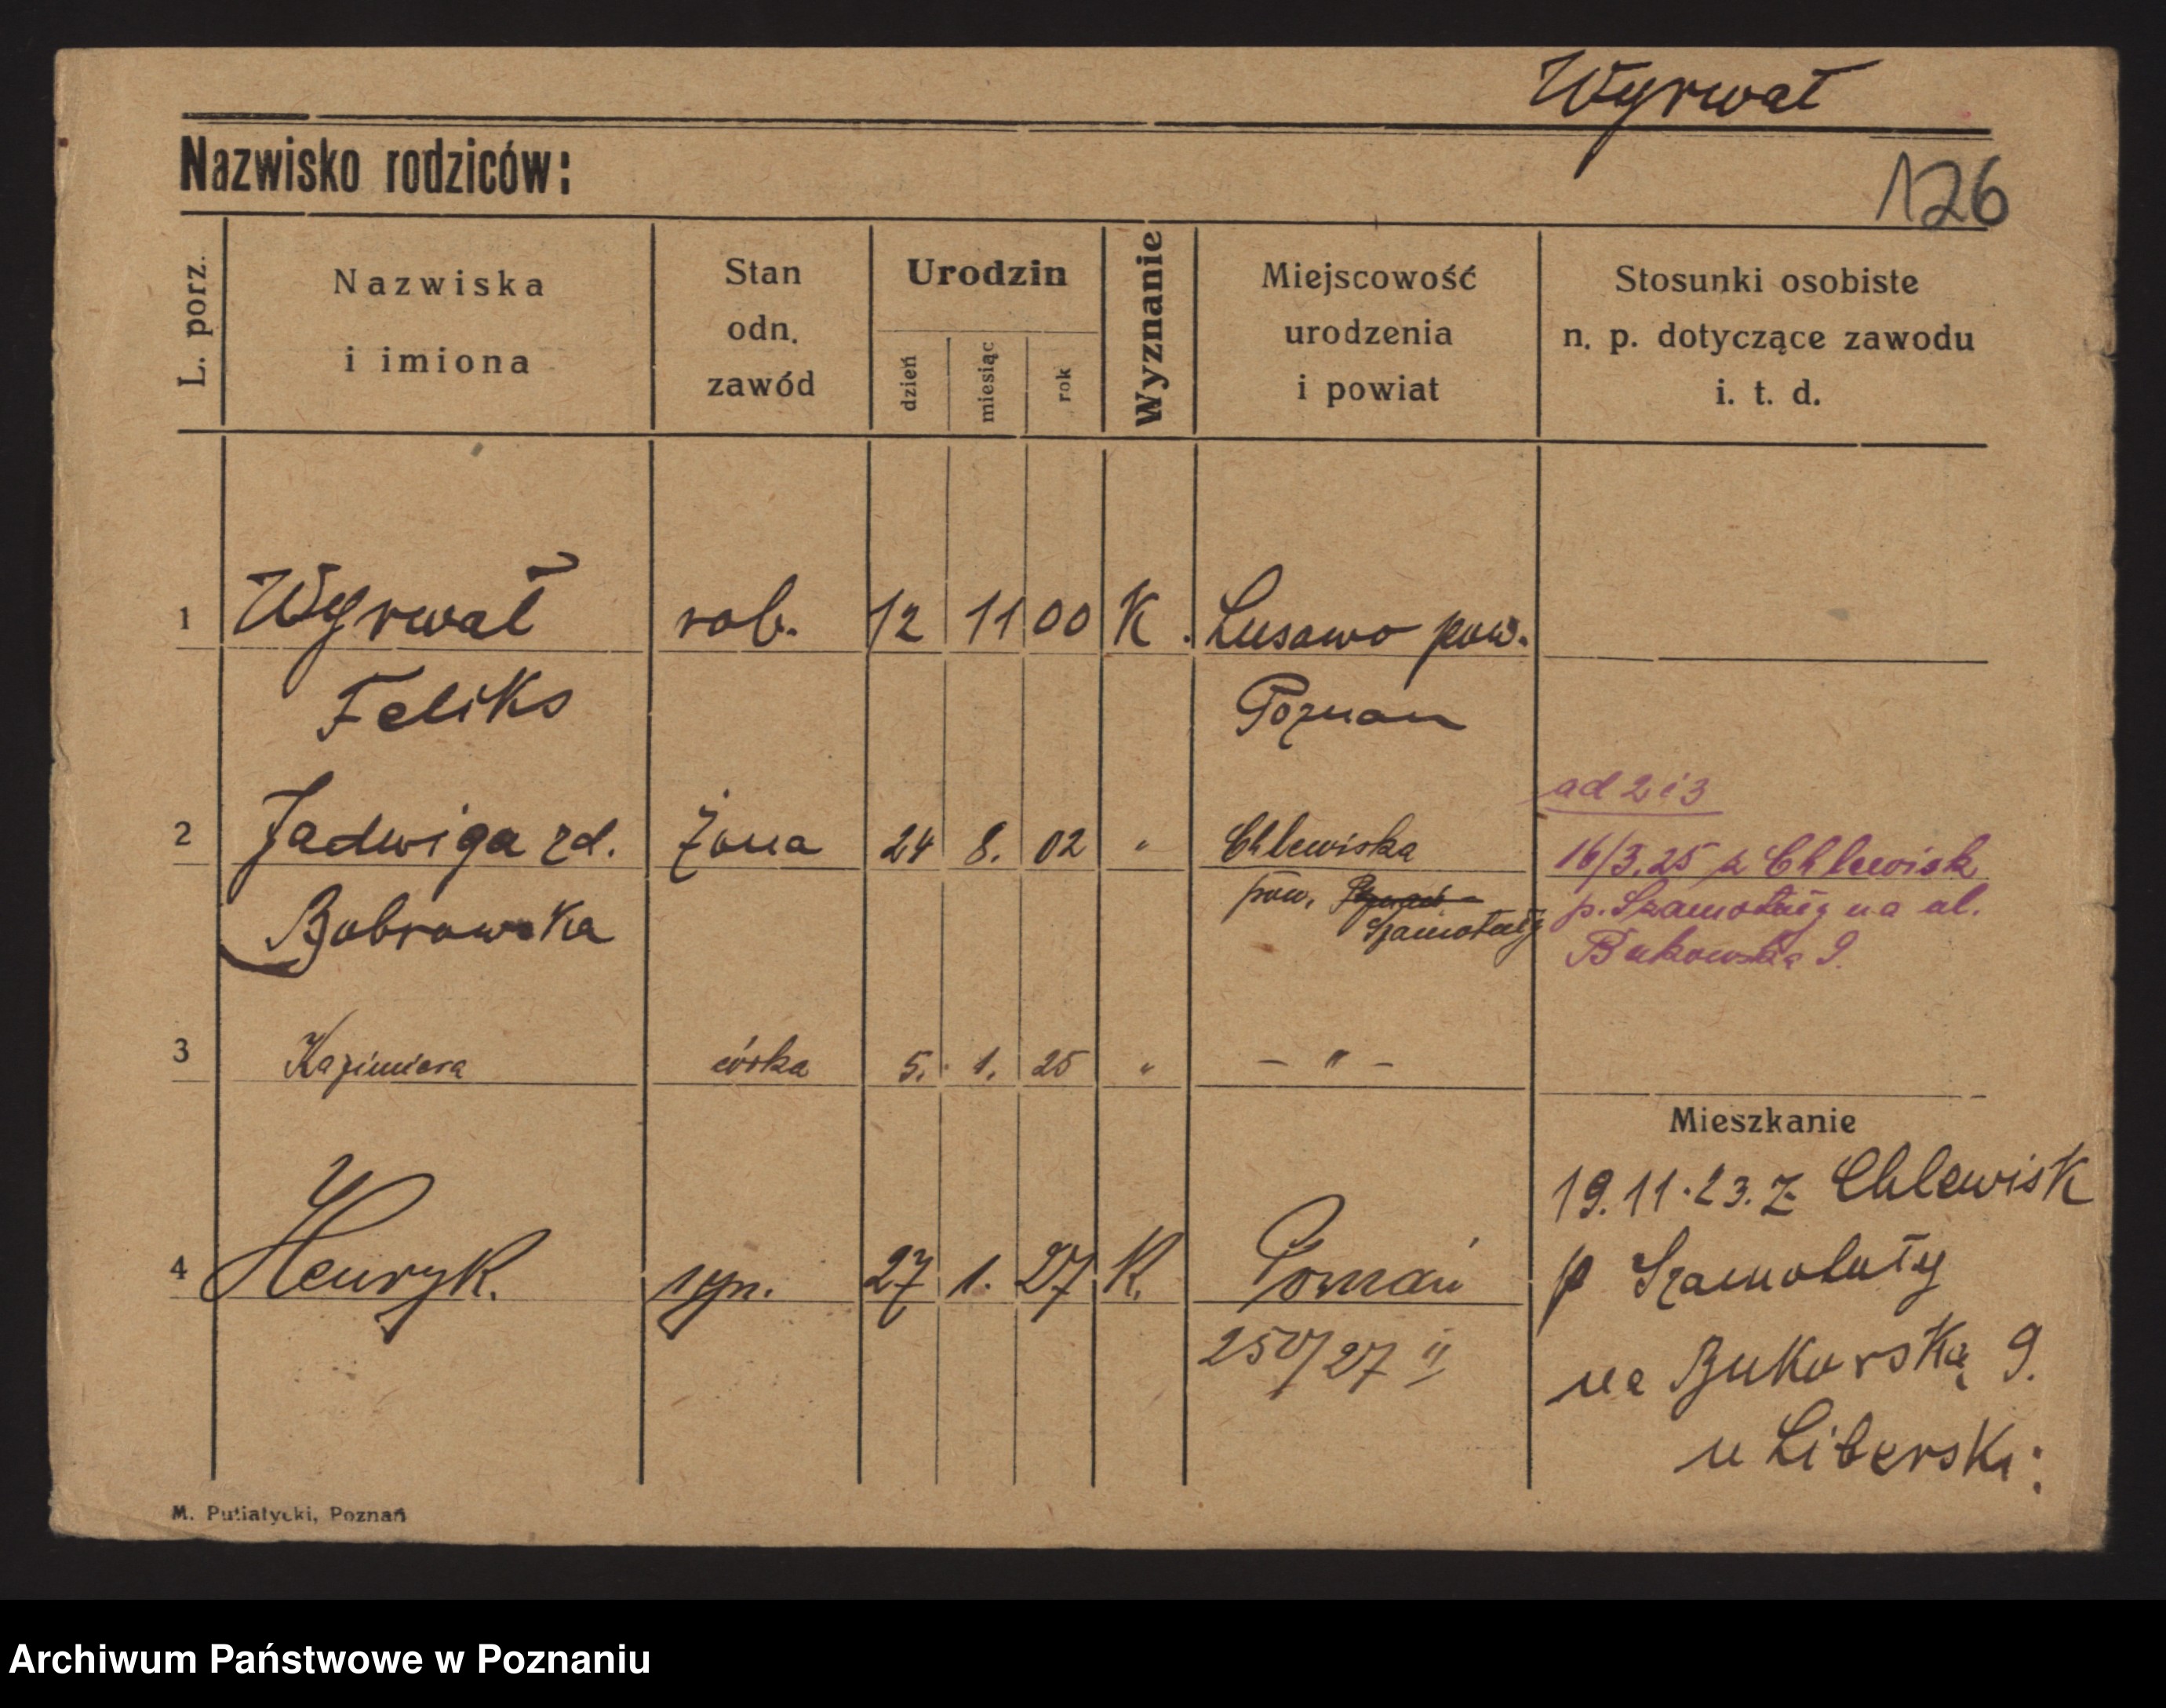 Wyrwał
Nazwisko rodziców:
126
L. porz.
Nazwiska
i imiona
Stan
odn.
zawód
Urodzin
dzień
miesiąc
rok
Wyznanie
Miejscowość
urodzenia
i powiat
Stosunki osobiste
n. p. dotyczące zawodu
i. t. d.
1 Wyrwał rob. 12 11 00 K. Lusowo pow.
Feliks Poznan
ad 2 i 3
2 Jadwiga zd. żona 24 8. 02 " Chlewiska
16/3.25 z Chlewisk
Bobrowska pow. Szamotuły
p. Szamotuły na ul.
Bukowską 9.
3 Kazimiera córka 5. 1. 25 " - " -
Mieszkanie
19.11.23. z Chlewisk
p Szamotuły
4 Henryk. syn. 27 1. 27 K. Poznań
250/27 II
na Bukowską 9.
u Liberski
M. Putiatycki, Poznań
Archiwum Państwowe w Poznaniu